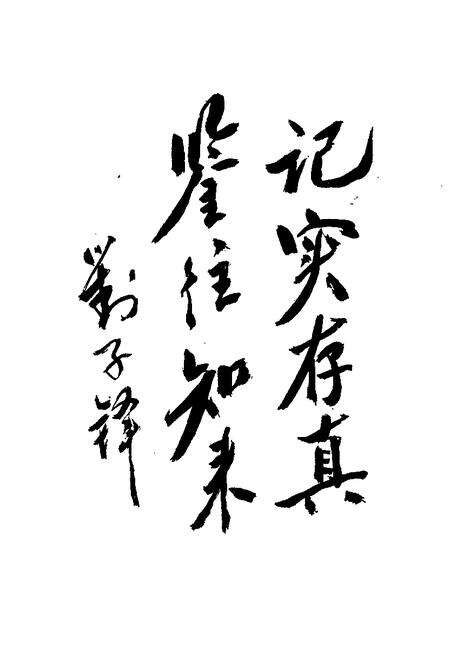 记实存真
鉴往知来
刘子锋